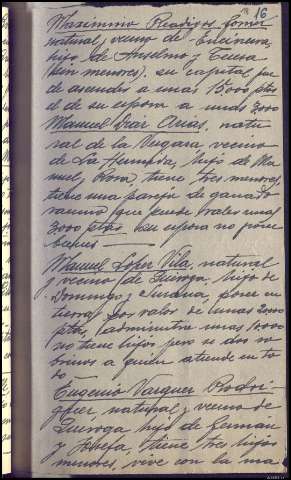 16
Maximino Rodriguez Gomez
natural y vecino de Encineira
hijo de Anselmo y Teresa
(sin menores). su capital pue
de asciende a unas 15000 ptas
el de su esposa a unas 3000
Manuel Diaz Arias, natu
ral de la Vegara vecino
de La Hermida, hijo de Ma
nuel, Rosa, tiene tres menores,
tiene una pareja de ganado
vacuno que puede valer unas
3000 ptas, su esposa no posee
bienes
Manuel Lopez Vila, natural
y vecino de Quiroga, hijo de
Domingo y Juana, posee en
tierras por valor de unas 20000
ptas, administra unas 10000
no tiene hijos pero si dos so
brinos a quien atiende en to
do
Eugenio Vazquez Rodri
guez natural y vecino de
Quiroga hijo de German
y Josefa, tiene tres hijos
menores, vive con la ma